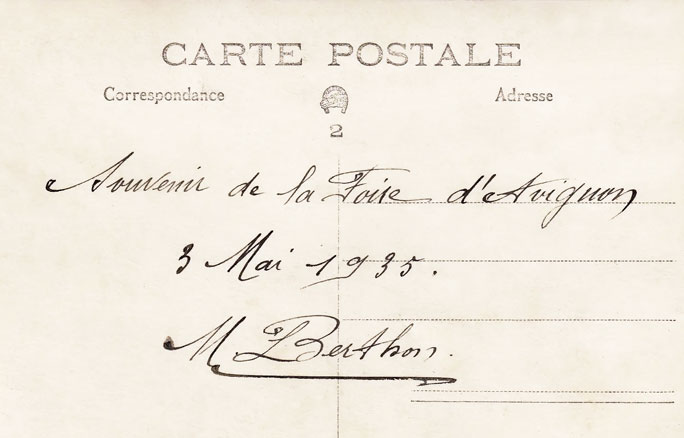 CARTE POSTALE
Correspondance Adresse
2
Souvenir de la Foire d'Avignon
3 Mai 1935.
M Berthon.